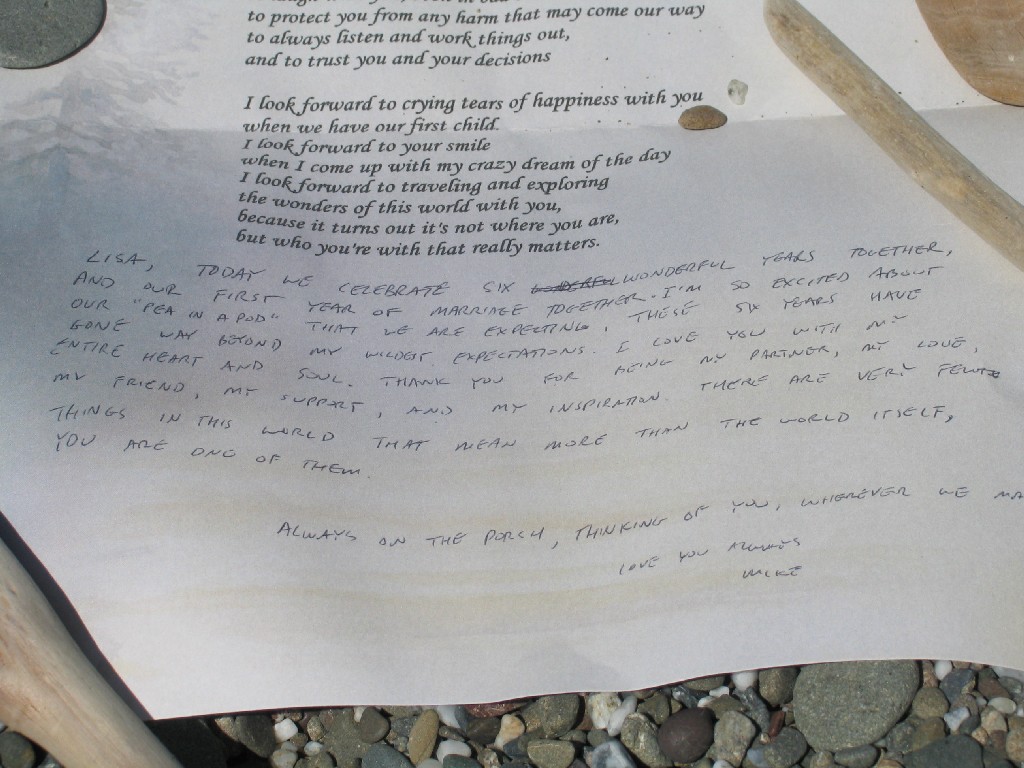 to protect you from any harm that may come our way
to always listen and work things out,
and to trust you and your decisions
I look forward to crying tears of happiness with you
when we have our first child.
I look forward to your smile
when I come up with my crazy dream of the day
I look forward to traveling and exploring
the wonders of this world with you,
because it turns out it's not where you are,
but who you're with that really matters.
LISA, TODAY WE CELEBRATE SIX WONDERFUL YEARS TOGETHER,
AND OUR FIRST YEAR OF MARRIAGE TOGETHER. I'M SO EXCITED ABOUT
OUR "PEA IN A POD" THAT WE ARE EXPECTING. THESE SIX YEARS HAVE
GONE WAY BEYOND MY WILDEST EXPECTATIONS. I LOVE YOU WITH MY
ENTIRE HEART AND SOUL. THANK YOU FOR BEING MY PARTNER, MY LOVE,
MY FRIEND, MY SUPPORT, AND MY INSPIRATION. THERE ARE VERY FEW
THINGS IN THIS WORLD THAT MEAN MORE THAN THE WORLD ITSELF,
YOU ARE ONE OF THEM.
ALWAYS ON THE PORCH, THINKING OF YOU, WHEREVER WE MA
LOVE YOU ALWAYS
MIKE